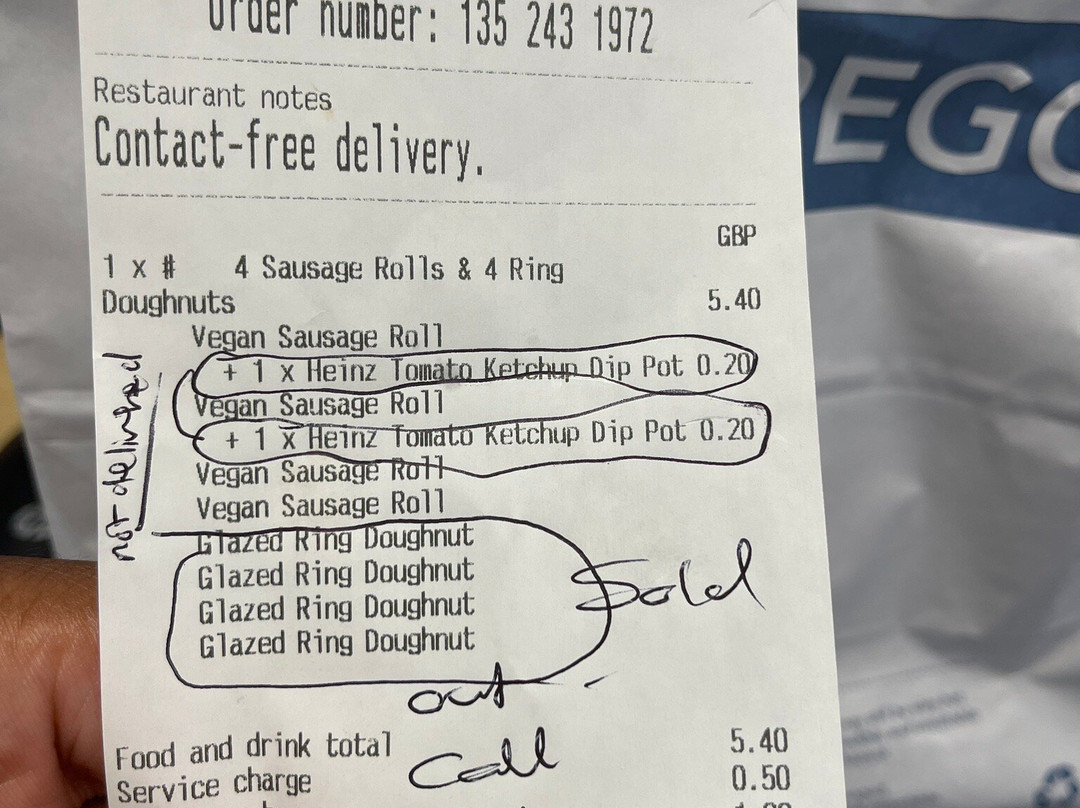 Order number: 135 243 1972
Restaurant notes
Contact-free delivery.
GBP
1 x # 4 Sausage Rolls & 4 Ring
Doughnuts 5.40
Vegan Sausage Roll
+ 1 x Heinz Tomato Ketchup Dip Pot 0.20
Vegan Sausage Roll
+ 1 x Heinz Tomato Ketchup Dip Pot 0.20
Vegan Sausage Roll
Vegan Sausage Roll
not delivered
Glazed Ring Doughnut
Glazed Ring Doughnut
Glazed Ring Doughnut
Glazed Ring Doughnut
Sold
out
Call
Food and drink total 5.40
Service charge 0.50
EGG